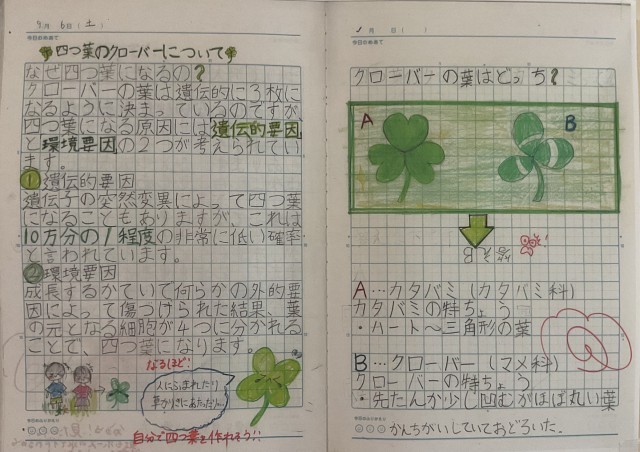 9月 6日(土)
今日のめあて
四つ葉のクローバーについて
なぜ四つ葉になるの?
クローバーの葉は遺伝的に3枚に
なるように決まっているのですが
四つ葉になる原因には遺伝的要因
と環境要因の2つが考えられてい
ます。
①遺伝的要因
遺伝子の突然変異によって四つ葉
になることもありますが、これは
10万分の1程度の非常に低い確率
と言われています。
②環境要因
成長するかていで何らかの外的要
因によって傷つけられた結果、葉
の元となる細胞が4つに分かれる
ことで、四つ葉になります。
なるほど!
人にふまれたり
草かりきにあたったり…
自分で四つ葉を作れそう!!
月 日( )
今日のめあて
クローバーの葉はどっち?
A
B
答えB
A…カタバミ(カタバミ科)
カタバミの特ちょう
・ハート〜三角形の葉
B…クローバー(マメ科)
クローバーの特ちょう
・先たんが少し凹むがほぼ丸い葉
かんちがいしていておどろいた。